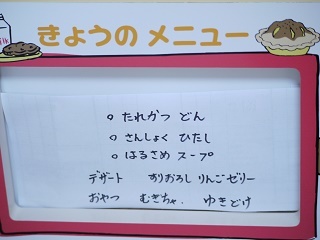 ilk
きょうの メニュー
○ たれかつ どん
○ さんしょく ひたし
○ はるさめ スープ
デザート すりおろし りんごゼリー
おやつ むぎちゃ、ゆきどけ